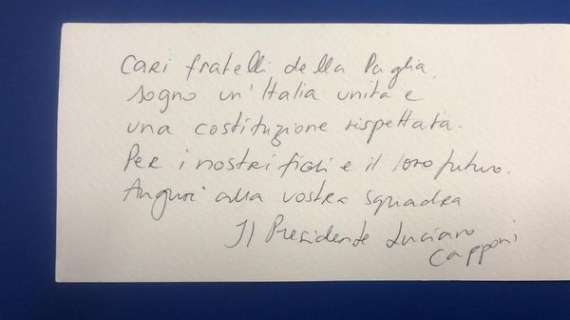 Cari fratelli della Paglia,
sogno un'Italia unita e
una costituzione rispettata.
Per i nostri figli e il loro futuro.
Auguri alla vostra squadra
Il Presidente Luciano
Capponi